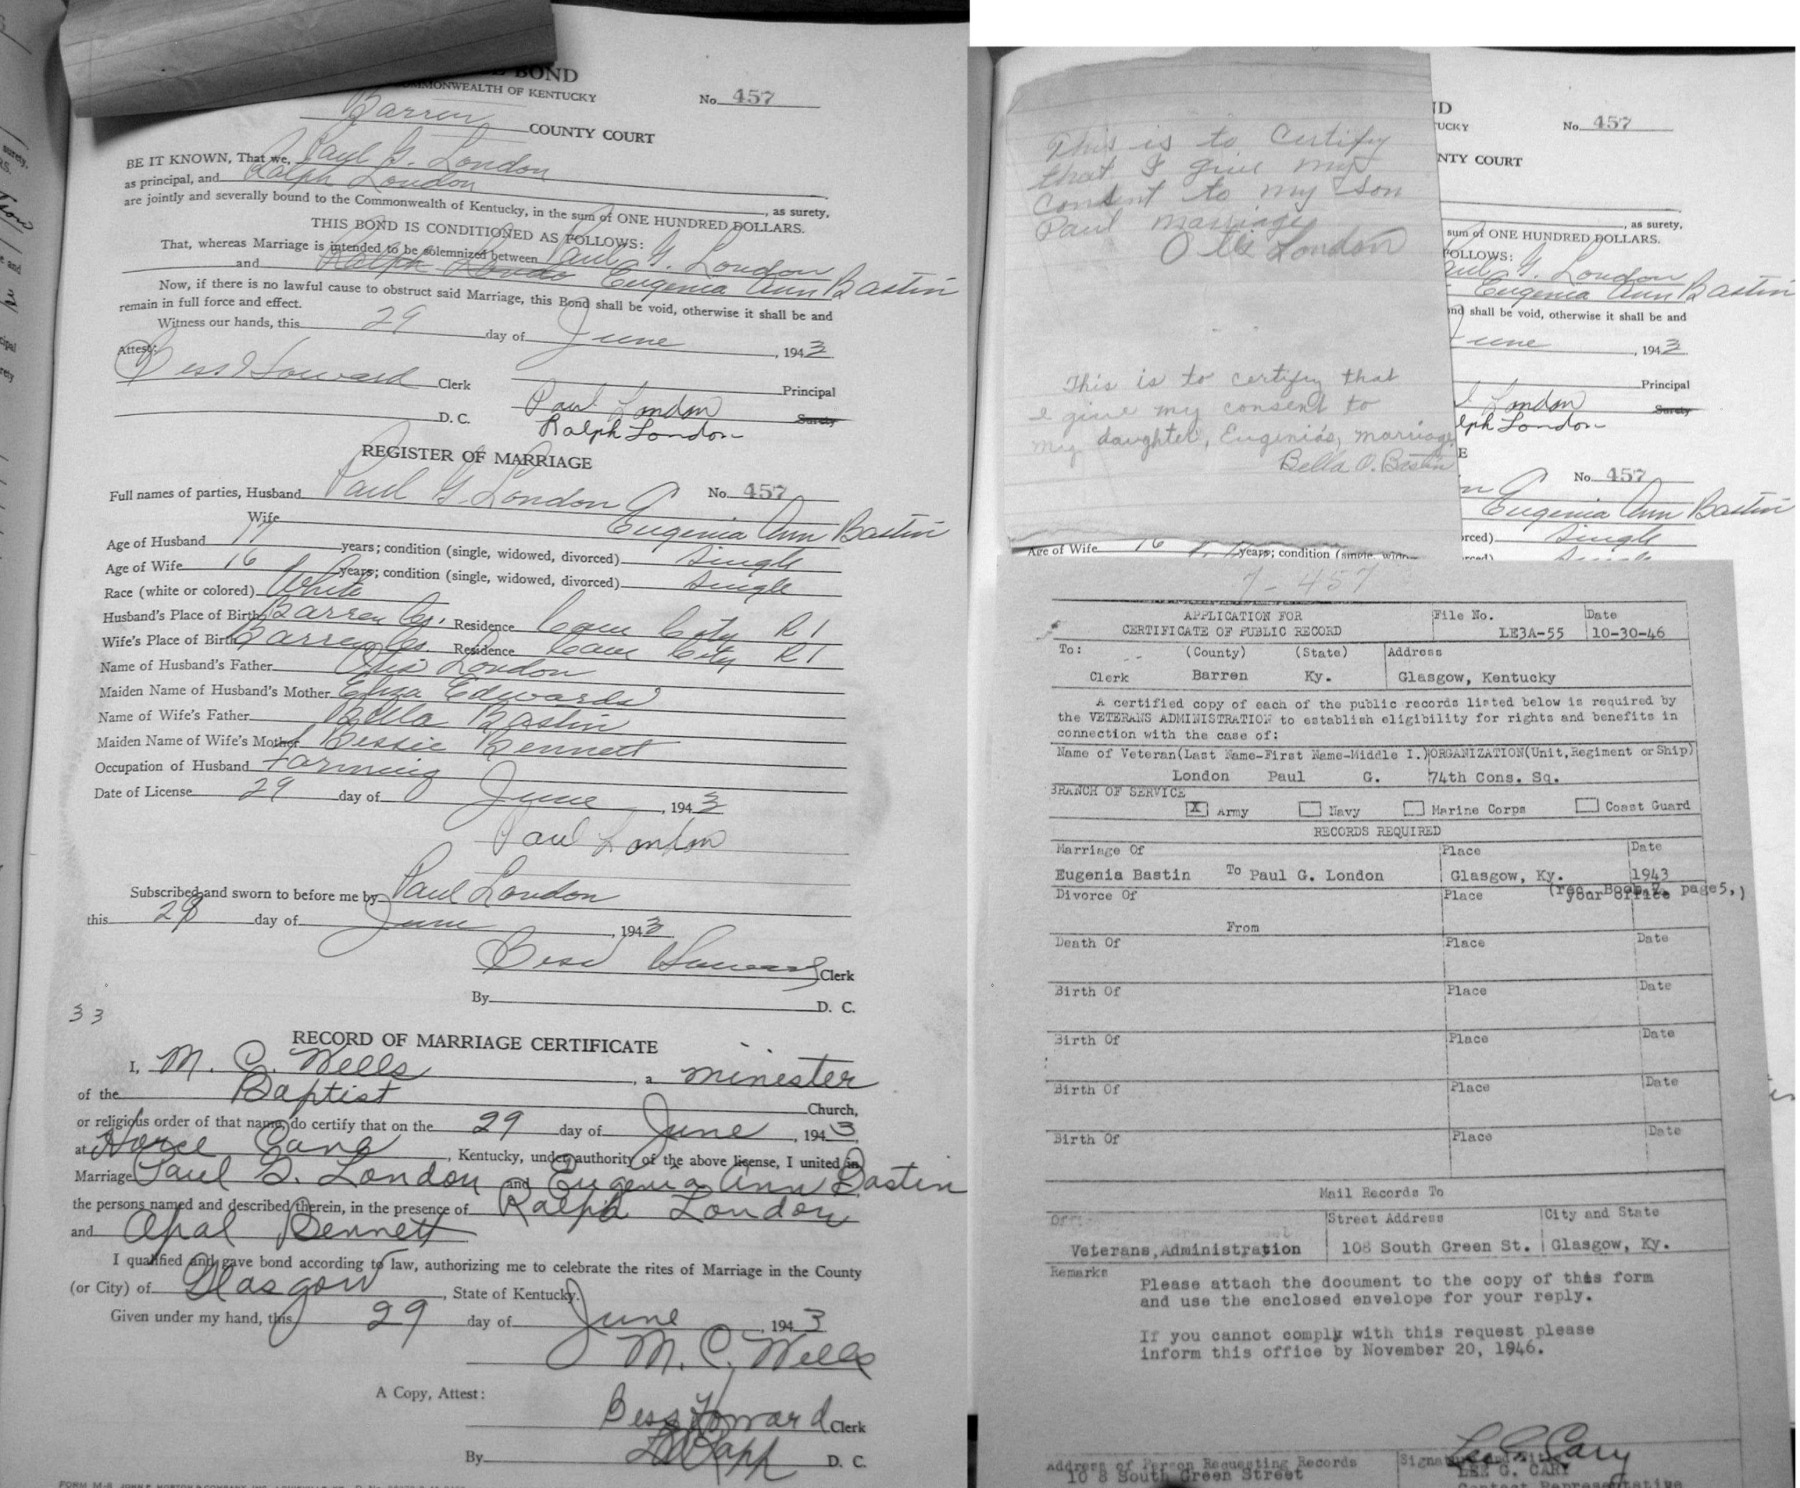 BOND
COMMONWEALTH OF KENTUCKY
No. 457
Barren COUNTY COURT
BE IT KNOWN, That we, Paul G. London
as principal, and Ralph London, as surety,
are jointly and severally bound to the Commonwealth of Kentucky, in the sum of ONE HUNDRED DOLLARS.
THIS BOND IS CONDITIONED AS FOLLOWS:
That, whereas Marriage is intended to be solemnized between Paul G. London
and Ralph London Eugenia Ann Bastin
Now, if there is no lawful cause to obstruct said Marriage, this Bond shall be void, otherwise it shall be and
remain in full force and effect.
Witness our hands, this 29 day of June, 1943
Attest:
Bess Howard Clerk Principal
D. C. Paul London Surety
Ralph London
REGISTER OF MARRIAGE
Full names of parties, Husband Paul G. London No. 457
Wife Eugenia Ann Bastin
Age of Husband 17 years; condition (single, widowed, divorced) Single
Age of Wife 16 years; condition (single, widowed, divorced) Single
Race (white or colored) White
Husband's Place of Birth Barren Co. Residence Cave City R1
Wife's Place of Birth Barren Co. Residence Cave City R1
Name of Husband's Father Otis London
Maiden Name of Husband's Mother Eliza Edwards
Name of Wife's Father Bella Bastin
Maiden Name of Wife's Mother Bessie Bennett
Occupation of Husband Farming
Date of License 29 day of June, 1943
Paul London
Subscribed and sworn to before me by Paul London
this 29 day of June, 1943
Bess Howard Clerk
By D. C.
33
RECORD OF MARRIAGE CERTIFICATE
I, M. C. Wells, a minester
of the Baptist Church,
or religious order of that name, do certify that on the 29 day of June, 1943,
at Horse Cave, Kentucky, under authority of the above license, I united in
Marriage Paul G. London and Eugenia Ann Bastin
the persons named and described therein, in the presence of Ralph London
and Opal Bennett
I qualified and gave bond according to law, authorizing me to celebrate the rites of Marriage in the County
(or City) of Glasgow, State of Kentucky.
Given under my hand, this 29 day of June, 1943
M. C. Wells
A Copy, Attest:
Bess Howard Clerk
By D. C.
This is to Certify
that I give my
consent to my son
Paul marriage
Otis London
This is to certify that
I give my consent to
my daughter, Eugenia's, marriage.
Bella O. Bastin
ND
UCKY No. 457
NTY COURT
, as surety,
sum of ONE HUNDRED DOLLARS.
FOLLOWS:
Paul G. London
Eugenia Ann Bastin
nd shall be void, otherwise it shall be and
June, 1943
Principal
London Surety
lph London
E
No. 457
Eugenia Ann Bastin
rced) Single
rced) Single
Age of Wife 16 years; condition (single, wido
7-457
APPLICATION FOR
CERTIFICATE OF PUBLIC RECORD
File No.
LE3A-55
Date
10-30-46
To: (County) (State) Address
Clerk Barren Ky. Glasgow, Kentucky
A certified copy of each of the public records listed below is required by
the VETERANS ADMINISTRATION to establish eligibility for rights and benefits in
connection with the case of:
Name of Veteran(Last Name-First Name-Middle I.) ORGANIZATION(Unit, Regiment or Ship)
London Paul G. 74th Cons. Sq.
BRANCH OF SERVICE
X Army Navy Marine Corps Coast Guard
RECORDS REQUIRED
Marriage Of Place Date
Eugenia Bastin To Paul G. London Glasgow, Ky. 1943
Divorce Of Place your office page5,)
From
Death Of Place Date
Birth Of Place Date
Birth Of Place Date
Birth Of Place Date
Birth Of Place Date
Mail Records To
Street Address City and State
Veterans Administration 108 South Green St. Glasgow, Ky.
Remarks
Please attach the document to the copy of this form
and use the enclosed envelope for your reply.
If you cannot comply with this request please
inform this office by November 20, 1946.
Lee G. Cary
Address of Person Requesting Records
108 South Green Street
LEE G. CARY
Contact Representative